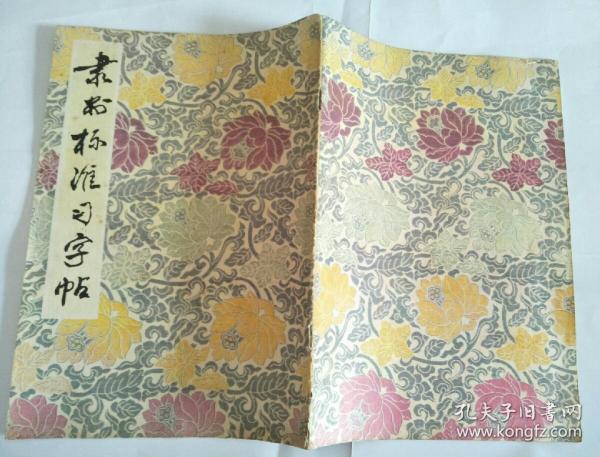 隶书标准习字帖
孔夫子旧书网
www.kongfz.com